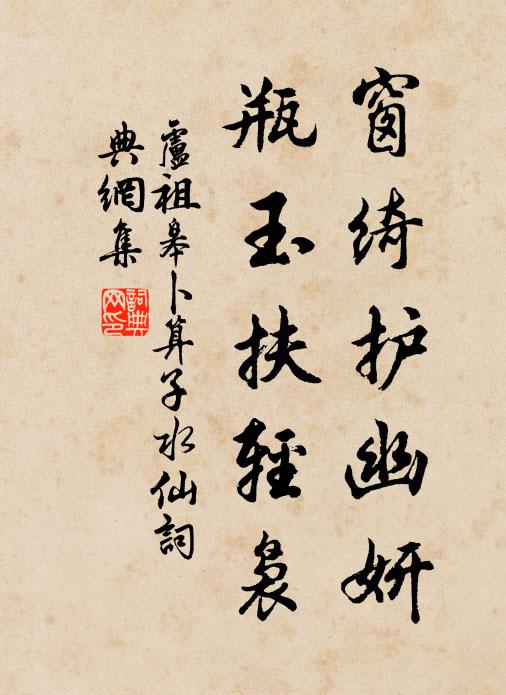 窗绮护幽妍
瓶玉扶轻袅
盧祖皋卜算子水仙詞
典網集
詞典网印